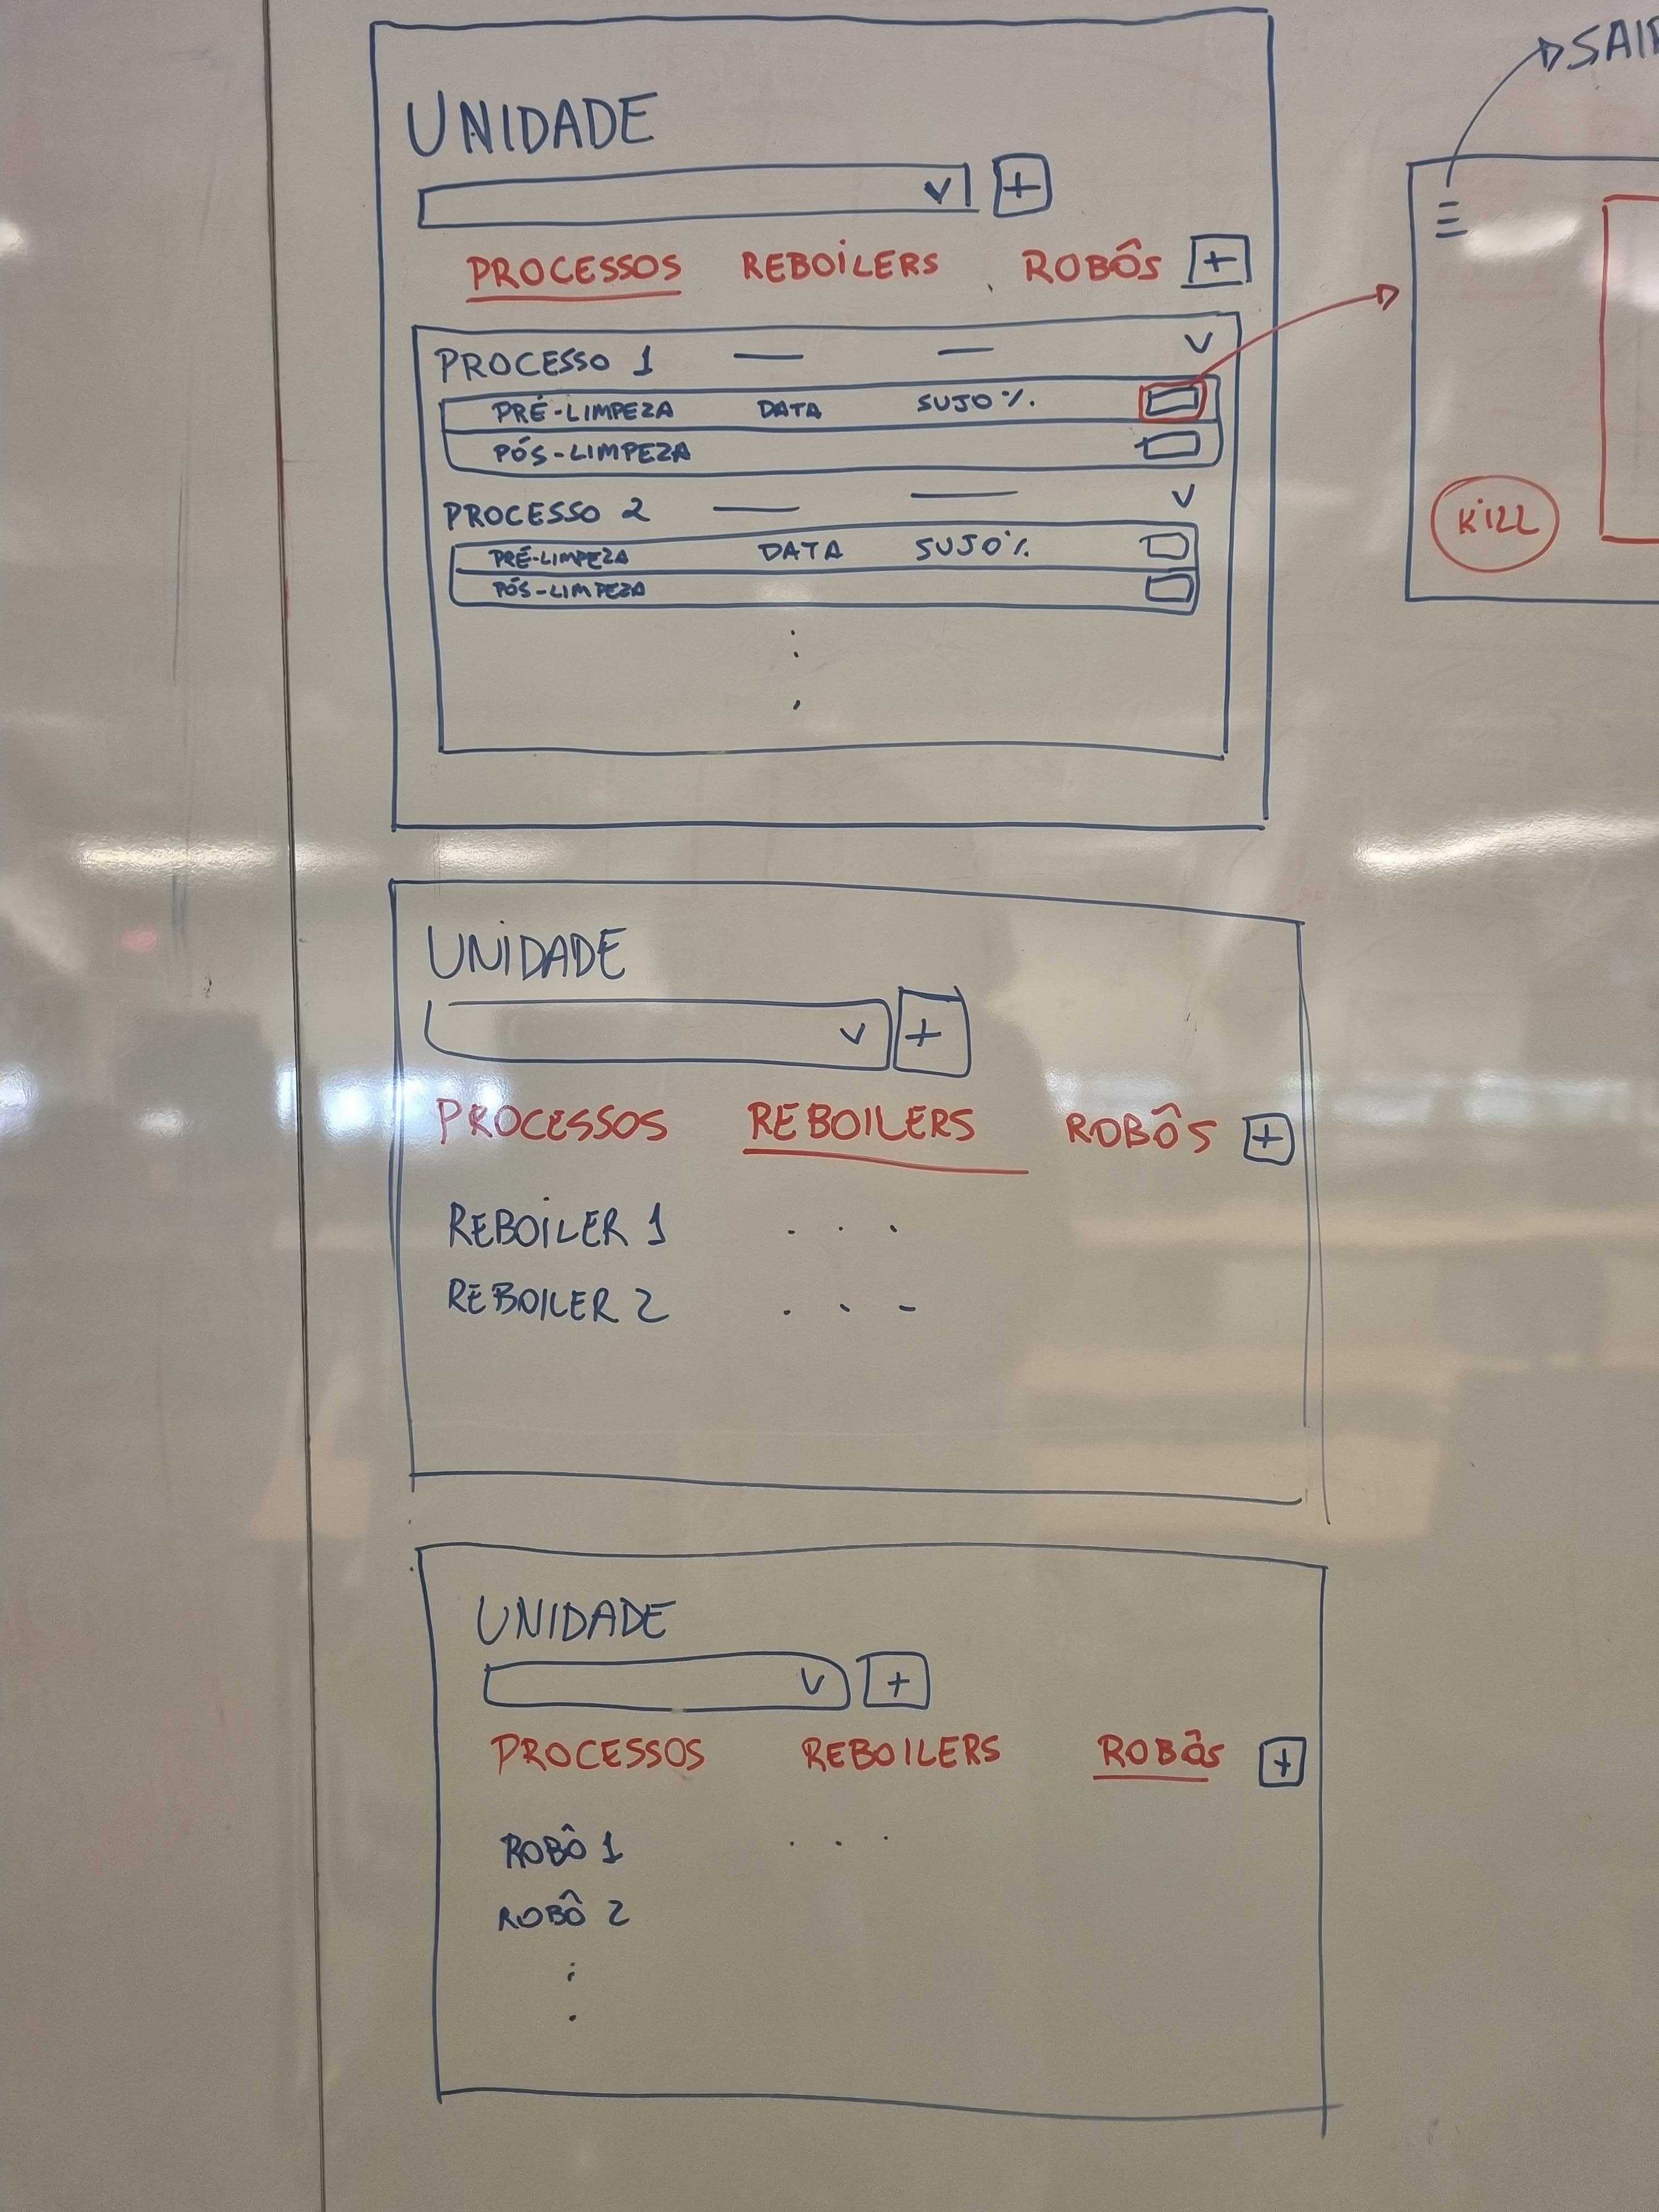 UNIDADE
V +
PROCESSOS REBOILERS ROBÔS +
PROCESSO 1 V
PRÉ-LIMPEZA DATA SUJO %.
PÓS-LIMPEZA
PROCESSO 2 V
PRÉ-LIMPEZA DATA SUJO %.
PÓS-LIMPEZA
KILL
UNIDADE
V +
PROCESSOS REBOILERS ROBÔS +
REBOILER 1 . . .
REBOILER 2 . . -
UNIDADE
V +
PROCESSOS REBOILERS ROBÔS +
ROBÔ 1 . . .
ROBÔ 2